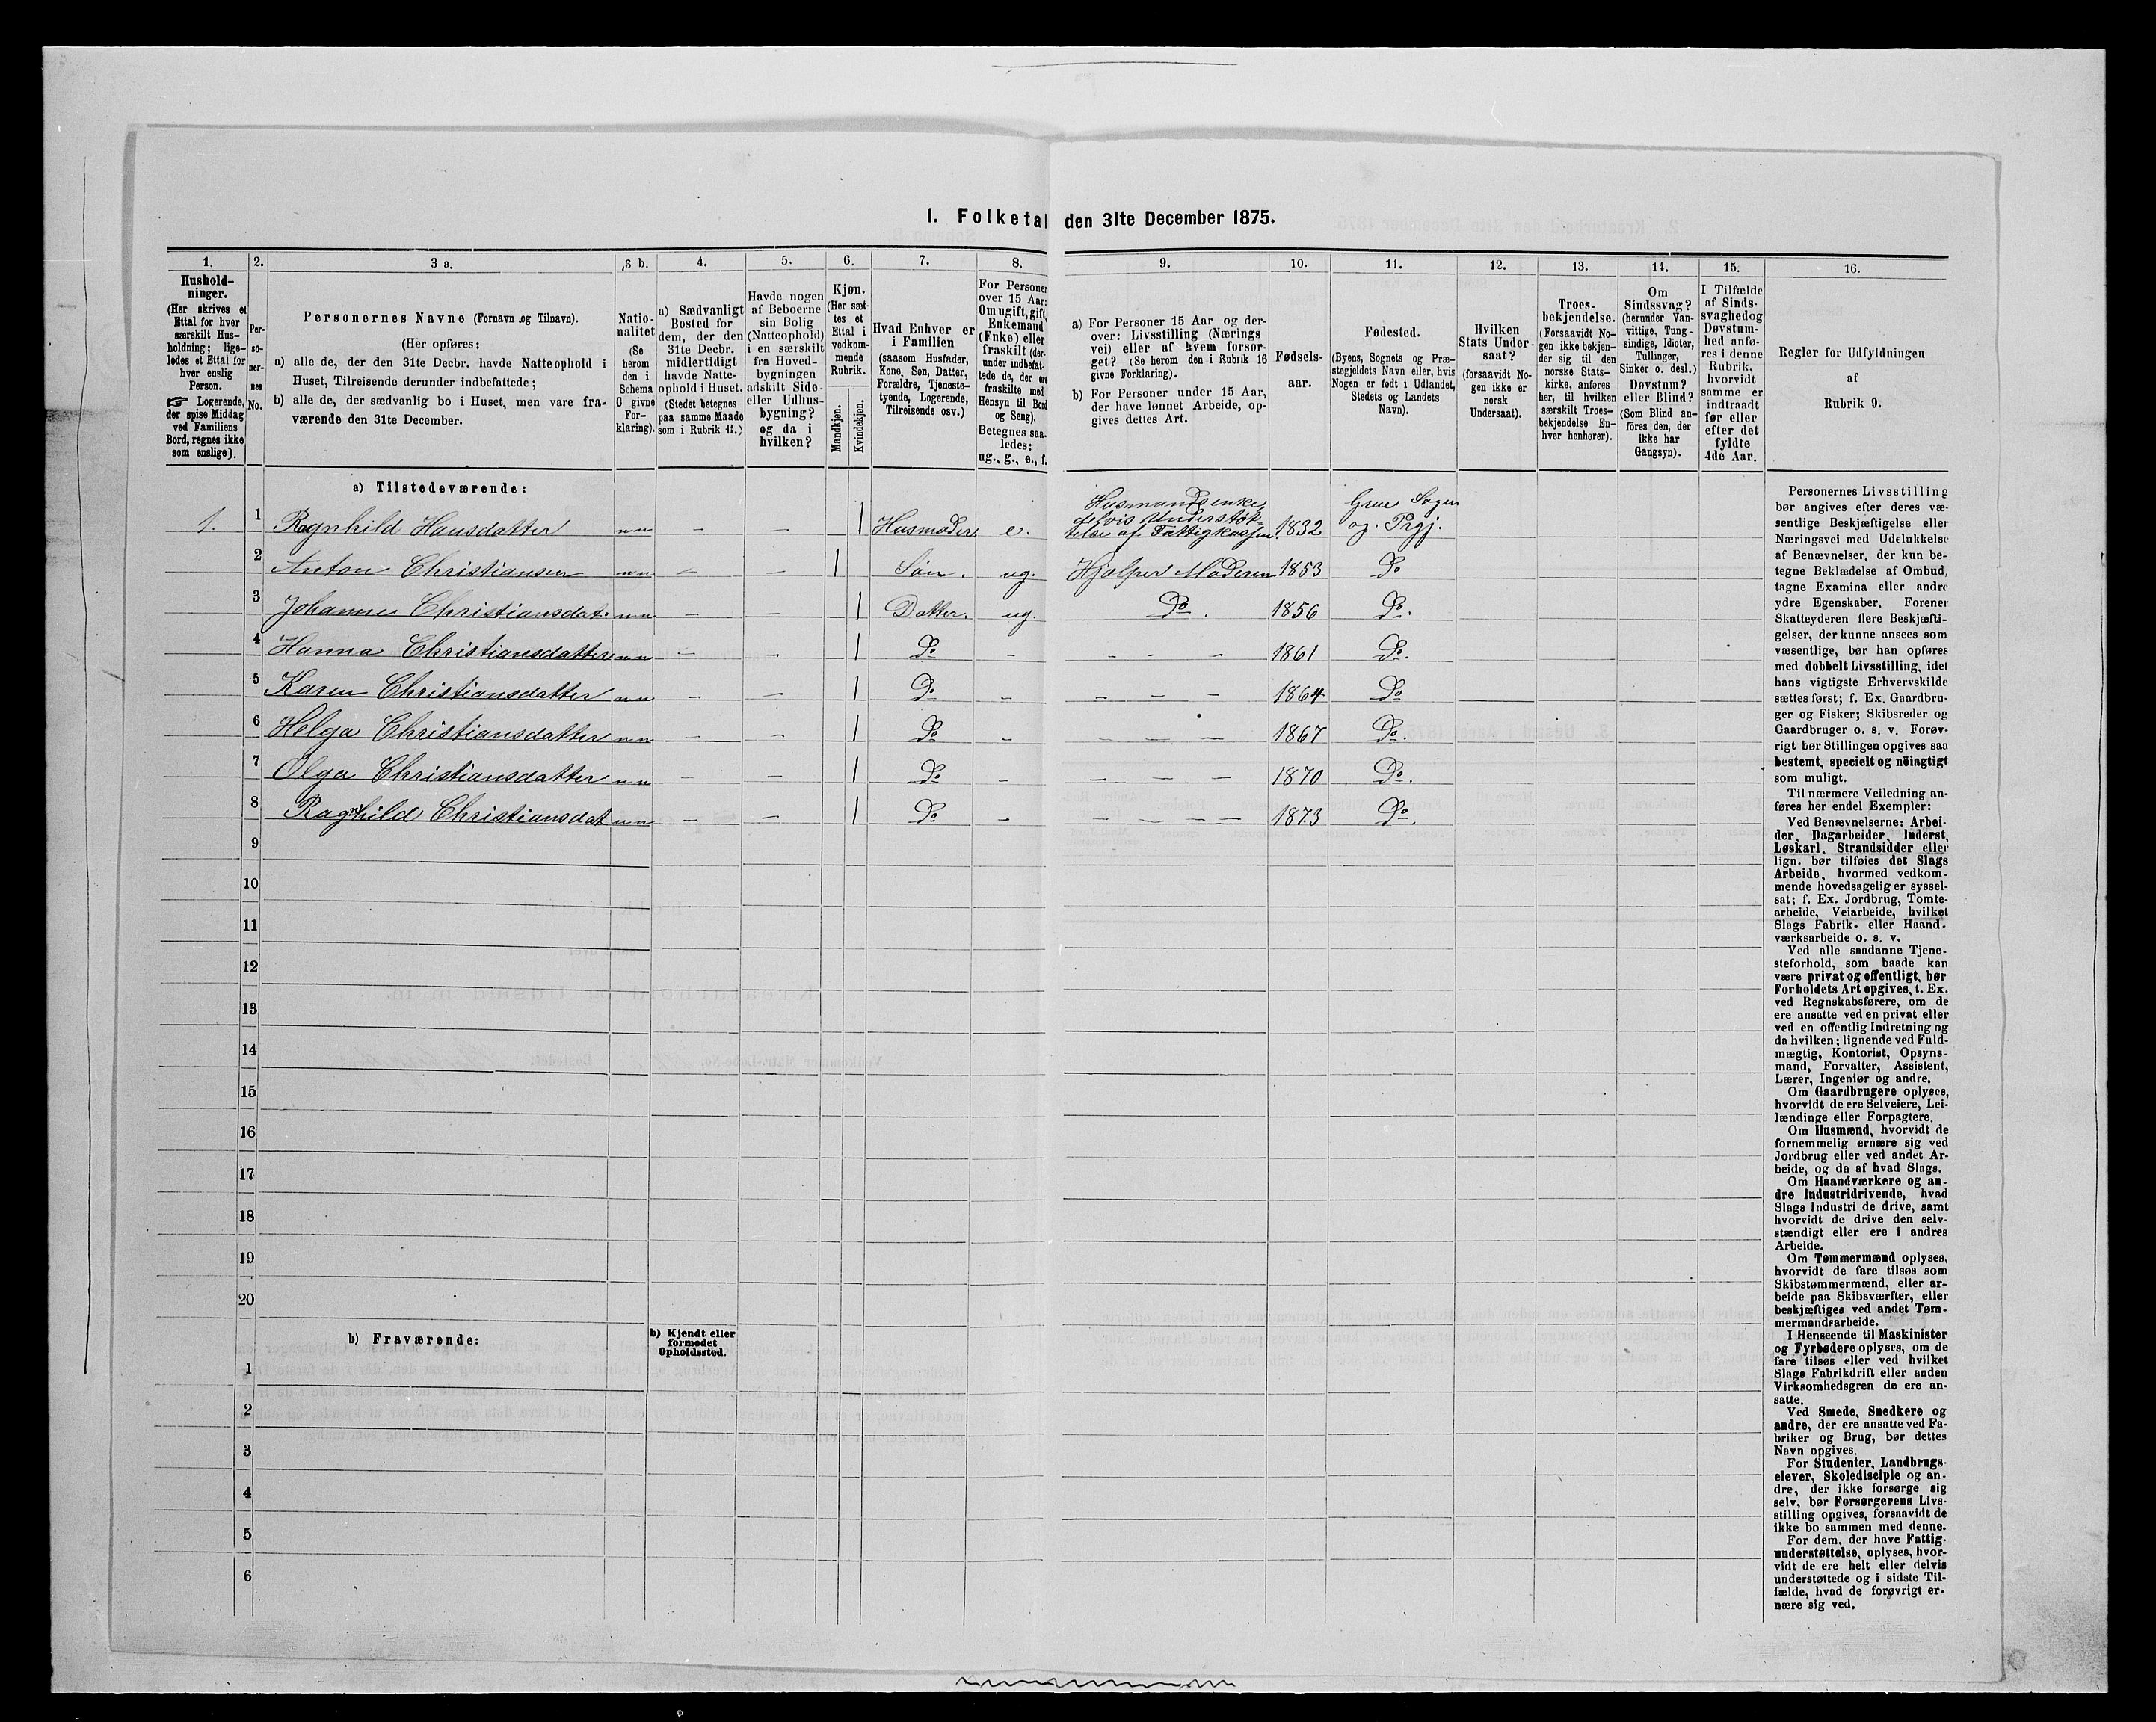 1. Folketal den 31te December 1875.
1.
Hushold-
ninger.
(Her skrives et
Ettal for hver
særskilt Hus-
holdning; lige-
ledes et Ettal for
hver enslig
Person.
☞ Logerende,
der spise Middag
ved Familiens
Bord, regnes ikke
som enslige).
2.
Per-
so-
ner-
nes
No.
3 a.
Personernes Navne (Fornavn og Tilnavn).
(Her opføres:
a) alle de, der den 31te Decbr. havde Natteophold i
Huset, Tilreisende derunder indbefattede;
b) alle de, der sædvanlig bo i Huset, men vare fra-
værende den 31te December.
3 b.
Natio-
nalitet
(Se
herom
den i
Schema
C givne
For-
klaring).
4.
a) Sædvanligt
Bosted for
dem, der den
31te Decbr.
midlertidigt
havde Natte-
ophold i Huset.
(Stedet betegnes
paa samme Maade
som i Rubrik 11.)
5.
Havde nogen
af Beboerne
sin Bolig
(Natteophold)
i en særskilt
fra Hoved-
bygningen
adskilt Side-
eller Udhus-
bygning?
og da i
hvilken?
6.
Kjøn.
(Her sæt-
tes et
Ettal i
vedkom-
mende
Rubrik.
Mandkjøn.
Kvindekjøn.
7.
Hvad Enhver er
i Familien
(saasom Husfader,
Kone, Søn, Datter,
Forældre, Tjeneste-
tyende, Logerende,
Tilreisende osv.)
8.
For Personer
over 15 Aar:
Om ugift, gift,
Enkemand
(Enke) eller
fraskilt (der-
under indbefat-
tede de, der ere
fraskilte med
Hensyn til Bord
og Seng).
Betegnes saa-
ledes:
ug., g., e., f.
9.
a) For Personer 15 Aar og der-
over: Livsstilling (Nærings
vei) eller af hvem forsør-
get? (Se herom den i Rubrik 16
givne Forklaring).
b) For Personer under 15 Aar,
der have lønnet Arbeide, op-
gives dettes Art.
10.
Fødsels-
aar.
11.
Fødested.
(Byens, Sognets og Præ-
stegjeldets Navn eller, hvis
Nogen er født i Udlandet,
Stedets og Landets
Navn).
12.
Hvilken
Stats Under-
saat?
(forsaavidt No-
gen ikke er
norsk
Undersaat).
13.
Troes-
bekjendelse.
(Forsaavidt No-
gen ikke bekjen-
der sig til den
norske Stats-
kirke, anføres
her, til hvilken
særskilt Troes-
bekjendelse En-
hver henhører).
14.
Om
Sindssvag?
(herunder Van-
vittige, Tung-
sindige, Idioter,
Tullinger,
Sinker o. desl.)
Døvstum?
eller Blind?
(Som Blind an-
føres den, der
ikke har
Gangsyn).
15.
I Tilfælde
af Sinds-
svaghed og
Døvstum-
hed anfø-
res i denne
Rubrik,
hvorvidt
samme er
indtraadt
før eller
efter det
fyldte
4de Aar.
16.
Regler for Udfyldningen
af
Rubrik 9.
a) Tilstedeværende:
1. 1 Ragnhild Hansdatter n n – – 1 Husmoder. e. Husmandsenke, delvis Understøt- telse af Fattigkassen. 1832 Grue Sogn og Prgj.
2 Anton Christiansen n n – – 1 Søn. ug. Hjælper Moderen 1853 Do
3 Johanne Christiansdat. n n – – 1 Datter. ug. Do. 1856 Do.
4 Hanna Christiansdatter n n – – 1 Do – – – – 1861 Do.
5 Karen Christiansdatter n n – – 1 Do – – – – 1864 Do
6 Helga Christiansdatter n n – – 1 Do – – – – 1867 Do.
7 Olga Christiansdatter n n – – 1 Do – – – – – 1870 Do.
8 Ragnhild Christiansdat n n – – 1 Do – – – – – 1873 Do.
9
10
11
12
13
14
15
16
17
18
19
20
b) Fraværende:
b) Kjendt eller
formodet
Opholdssted.
1
2
3
4
5
6
Personernes Livsstilling
bør angives efter deres væ-
sentlige Beskjæftigelse eller
Næringsvei med Udelukkelse
af Benævnelser, der kun be-
tegne Beklædelse af Ombud,
tagne Examina eller andre
ydre Egenskaber. Forener
Skatteyderen flere Beskjæfti-
gelser, der kunne ansees som
væsentlige, bør han opføres
med dobbelt Livsstilling, idet
hans vigtigste Erhvervskilde
sættes først; f. Ex. Gaardbru-
ger og Fisker; Skibsreder og
Gaardbruger o. s. v. Forøv-
rigt bør Stillingen opgives saa
bestemt, specielt og nöiagtigt
som muligt.
Til nærmere Veiledning an-
føres her endel Exempler:
Ved Benævnelserne: Arbei-
der, Dagarbeider, Inderst,
Løskarl, Strandsidder eller
lign. bør tilføies det Slags
Arbeide, hvormed vedkom-
mende hovedsagelig er syssel-
sat; f. Ex. Jordbrug, Tomte-
arbeide, Veiarbeide, hvilket
Slags Fabrik- eller Haand-
værksarbeide o. s. v.
Ved alle saadanne Tjene-
steforhold, som baade kan
være privat og offentligt, bør
Forholdets Art opgives, t. Ex.
ved Regnskabsførere, om de
ere ansatte ved en privat eller
ved en offentlig Indretning og
da hvilken; lignende ved Fuld-
mægtig, Kontorist, Opsyns-
mand, Forvalter, Assistent,
Lærer, Ingeniør og andre.
Om Gaardbrugere oplyses,
hvorvidt de ere Selveiere, Lei-
lændinge eller Forpagtere.
Om Husmænd, hvorvidt de
fornemmelig ernære sig ved
Jordbrug eller ved andet Ar-
beide, og da af hvad Slags.
Om Haandværkere og an-
dre Industridrivende, hvad
Slags Industri de drive, samt
hvorvidt de drive den selv-
stændigt eller ere i andres
Arbeide.
Om Tømmermænd oplyses,
hvorvidt de fare tilsøs som
Skibstømmermænd, eller ar-
beide paa Skibsværfter, eller
beskjæftiges ved andet Tøm-
mermandsarbeide.
I Henseende til Maskinister
og Fyrbødere oplyses, om de
fare tilsøs eller ved hvilket
Slags Fabrikdrift eller anden
Virksomhedsgren de ere an-
satte.
Ved Smede, Snedkere og
andre, der ere ansatte ved Fa-
briker og Brug, bør dettes
Navn opgives.
For Studenter, Landbrugs-
elever, Skoledisciple og an-
dre, der ikke forsørge sig
selv, bør Forsørgerens Livs-
stilling opgives, forsaavidt de
ikke bo sammen med denne.
For dem, der have Fattig-
understøttelse, oplyses, hvor-
vidt de ere helt eller delvis
understøttede og i sidste Til-
fælde, hvad de forøvrigt er-
nære sig ved.